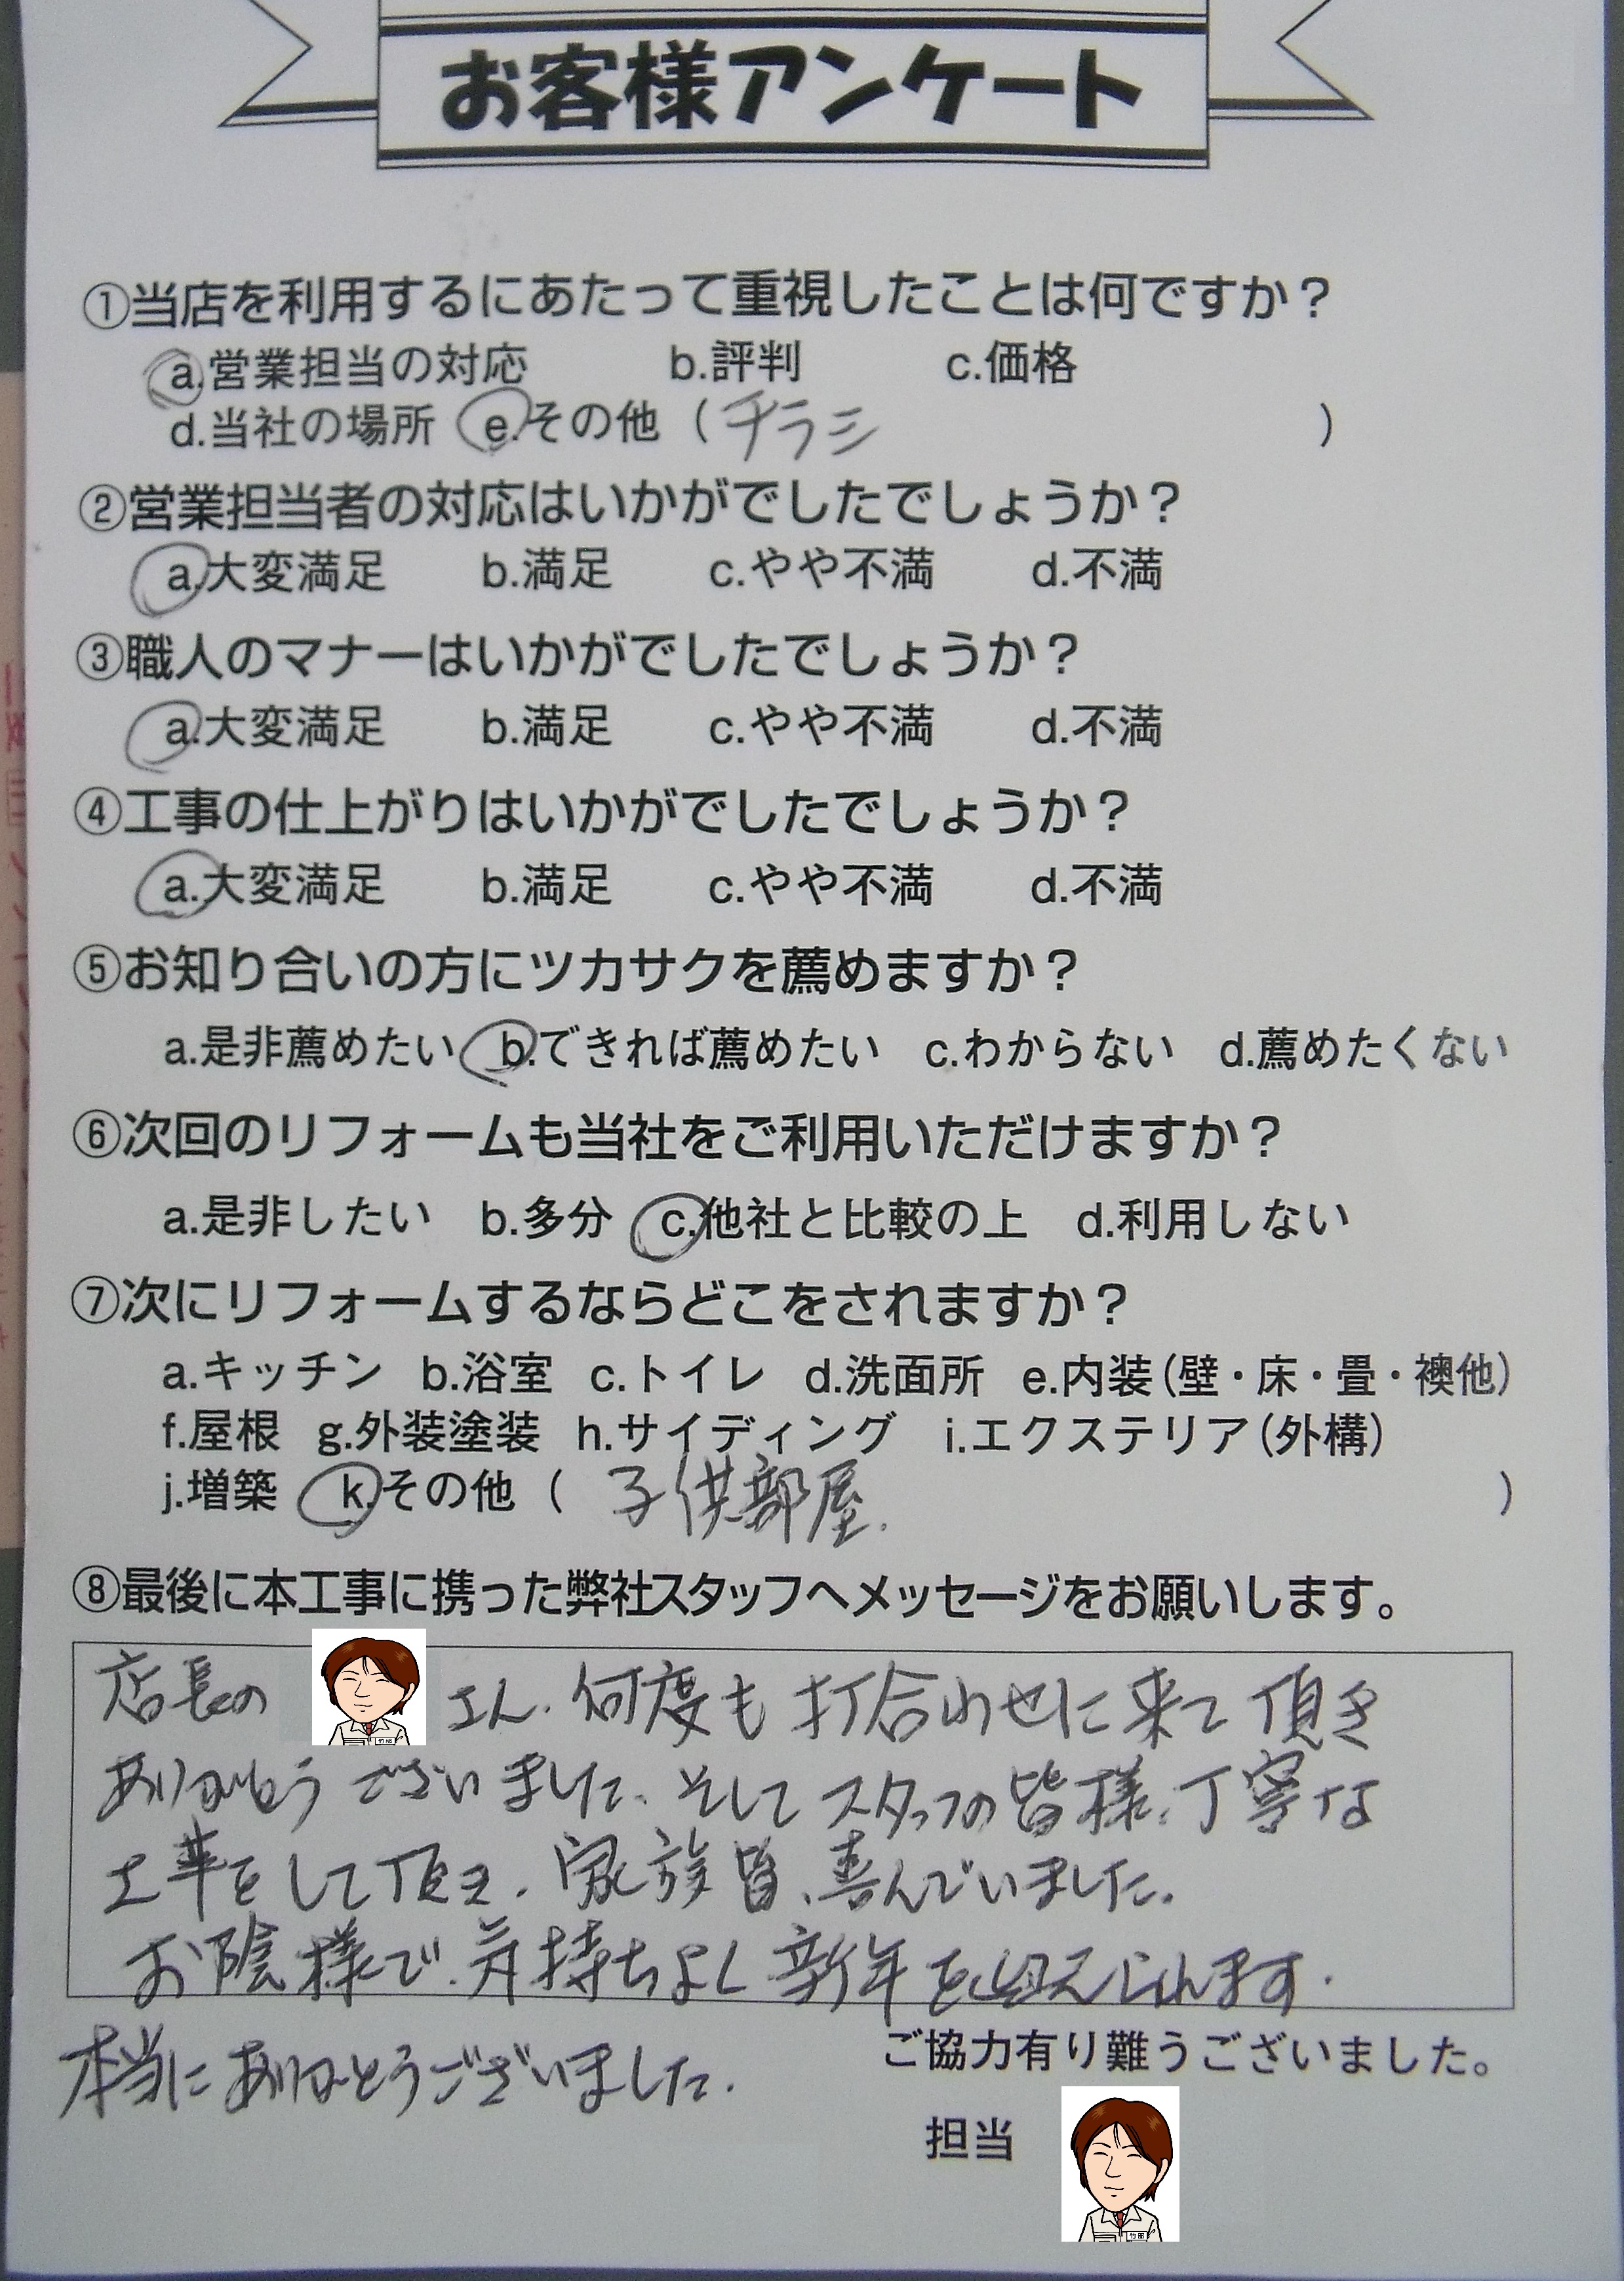 お客様アンケート
①当店を利用するにあたって重視したことは何ですか？
a.営業担当の対応 b.評判 c.価格
d.当社の場所 e.その他（チラシ ）
②営業担当者の対応はいかがでしたでしょうか？
a.大変満足 b.満足 c.やや不満 d.不満
③職人のマナーはいかがでしたでしょうか？
a.大変満足 b.満足 c.やや不満 d.不満
④工事の仕上がりはいかがでしたでしょうか？
a.大変満足 b.満足 c.やや不満 d.不満
⑤お知り合いの方にツカサクを薦めますか？
a.是非薦めたい b.できれば薦めたい c.わからない d.薦めたくない
⑥次回のリフォームも当社をご利用いただけますか？
a.是非したい b.多分 c.他社と比較の上 d.利用しない
⑦次にリフォームするならどこをされますか？
a.キッチン b.浴室 c.トイレ d.洗面所 e.内装（壁・床・畳・襖他）
f.屋根 g.外装塗装 h.サイディング i.エクステリア（外構）
j.増築 k.その他（ 子供部屋. ）
⑧最後に本工事に携った弊社スタッフへメッセージをお願いします。
店長の さん、何度も打合わせに来て頂き
ありがとうございました、そしてスタッフの皆様、丁寧な
工事をして頂き、家族皆、喜んでいました。
お陰様で、気持ちよく新年を迎えられます.
本当にありがとうございました.
ご協力有り難うございました。
担当